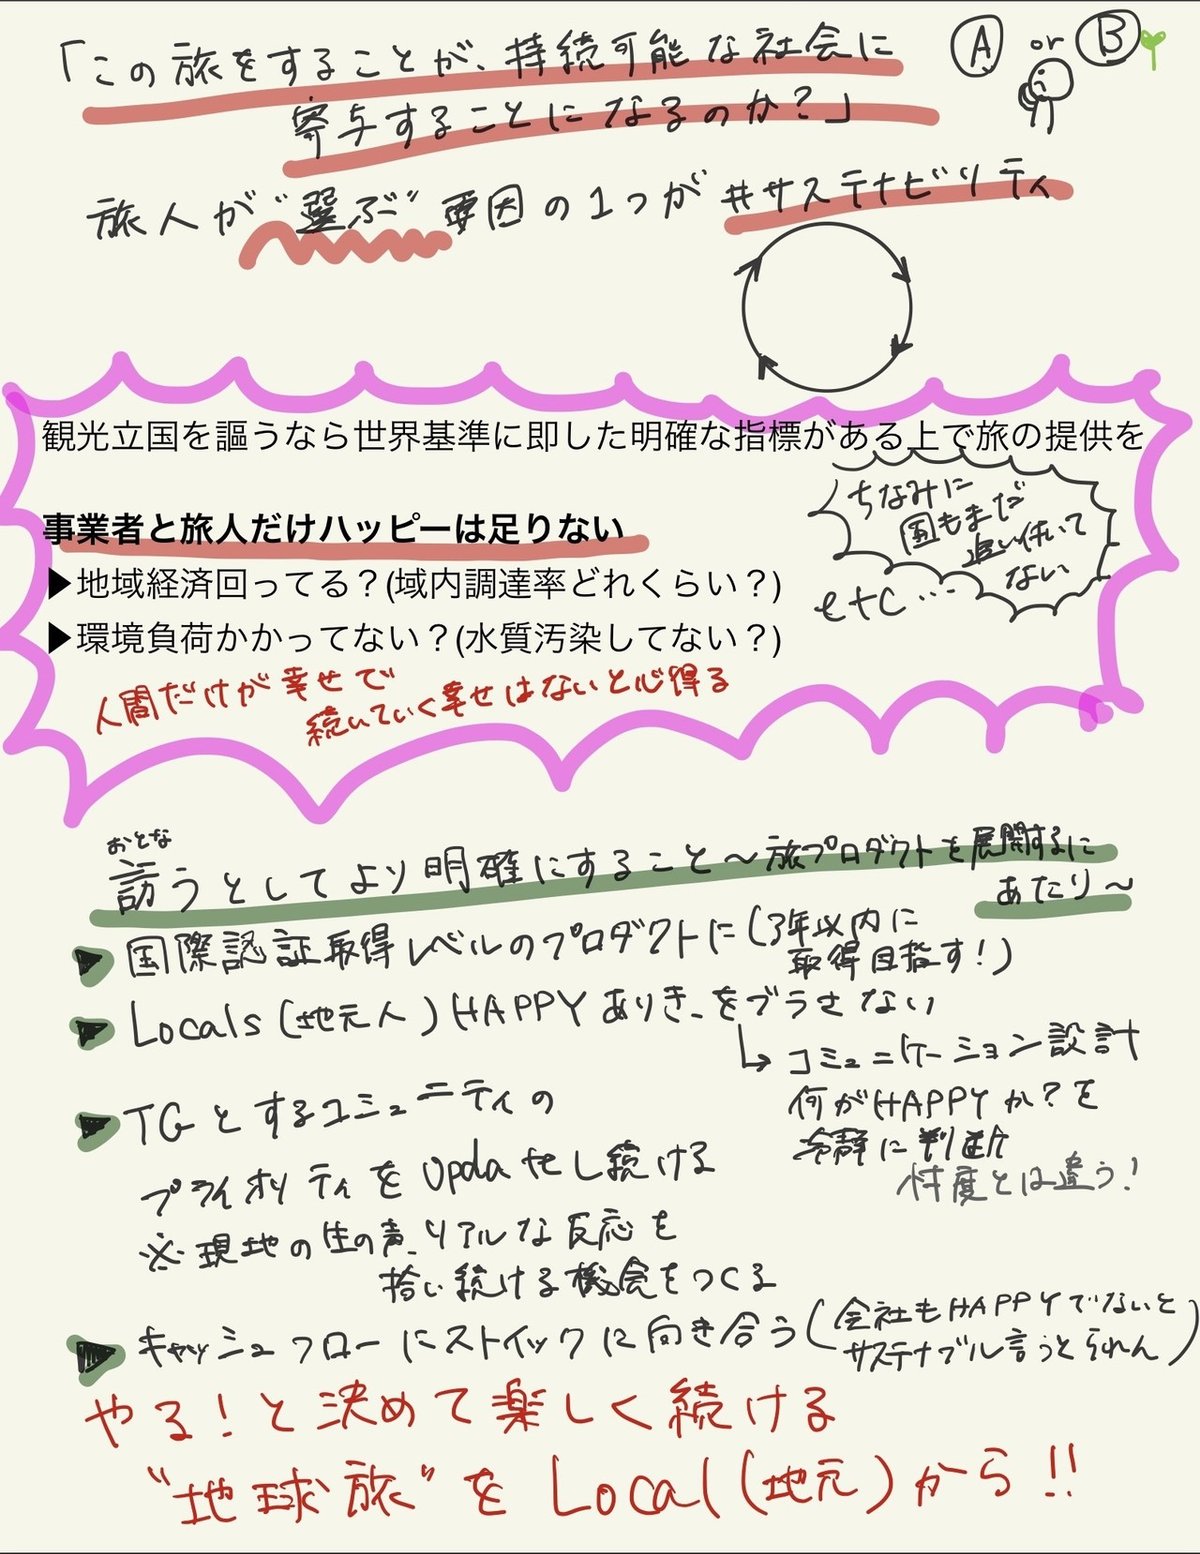 「この旅をすることが、持続可能な社会に
寄与することになるのか？」
A or B
旅人が"選ぶ"要因の1つが#サステナビリティ
観光立国を謳うなら世界基準に即した明確な指標がある上で旅の提供を
事業者と旅人だけハッピーは足りない
▶地域経済回ってる？(域内調達率どれくらい？)
▶環境負荷かかってない？(水質汚染してない？)
ちなみに
国もまだ
追い付いて
ない
etc...
人間だけが幸せで
続いていく幸せはないと心得る
おとな
訪うとしてより明確にすること〜旅プロダクトを展開するに
あたり〜
▶国際認証取得レベルのプロダクトに(3年以内に
取得目指す!)
▶Locals(地元人)HAPPYありき、をブラさない
↳コミュニケーション設計
何がHAPPYか？を
冷静に判断
忖度とは違う!
▶TGとするコミュニティの
プライオリティをupdateし続ける
※現地の生の声、リアルな反応を
拾い続ける機会をつくる
▶キャッシュフローにストイックに向き合う(会社もHAPPYでないと
サステナブル言うとられん)
やる!と決めて楽しく続ける
"地球旅"をLocal(地元)から!!